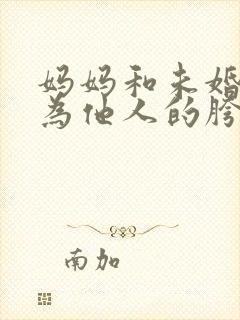 妈妈和未婚
为他人的胯
南加